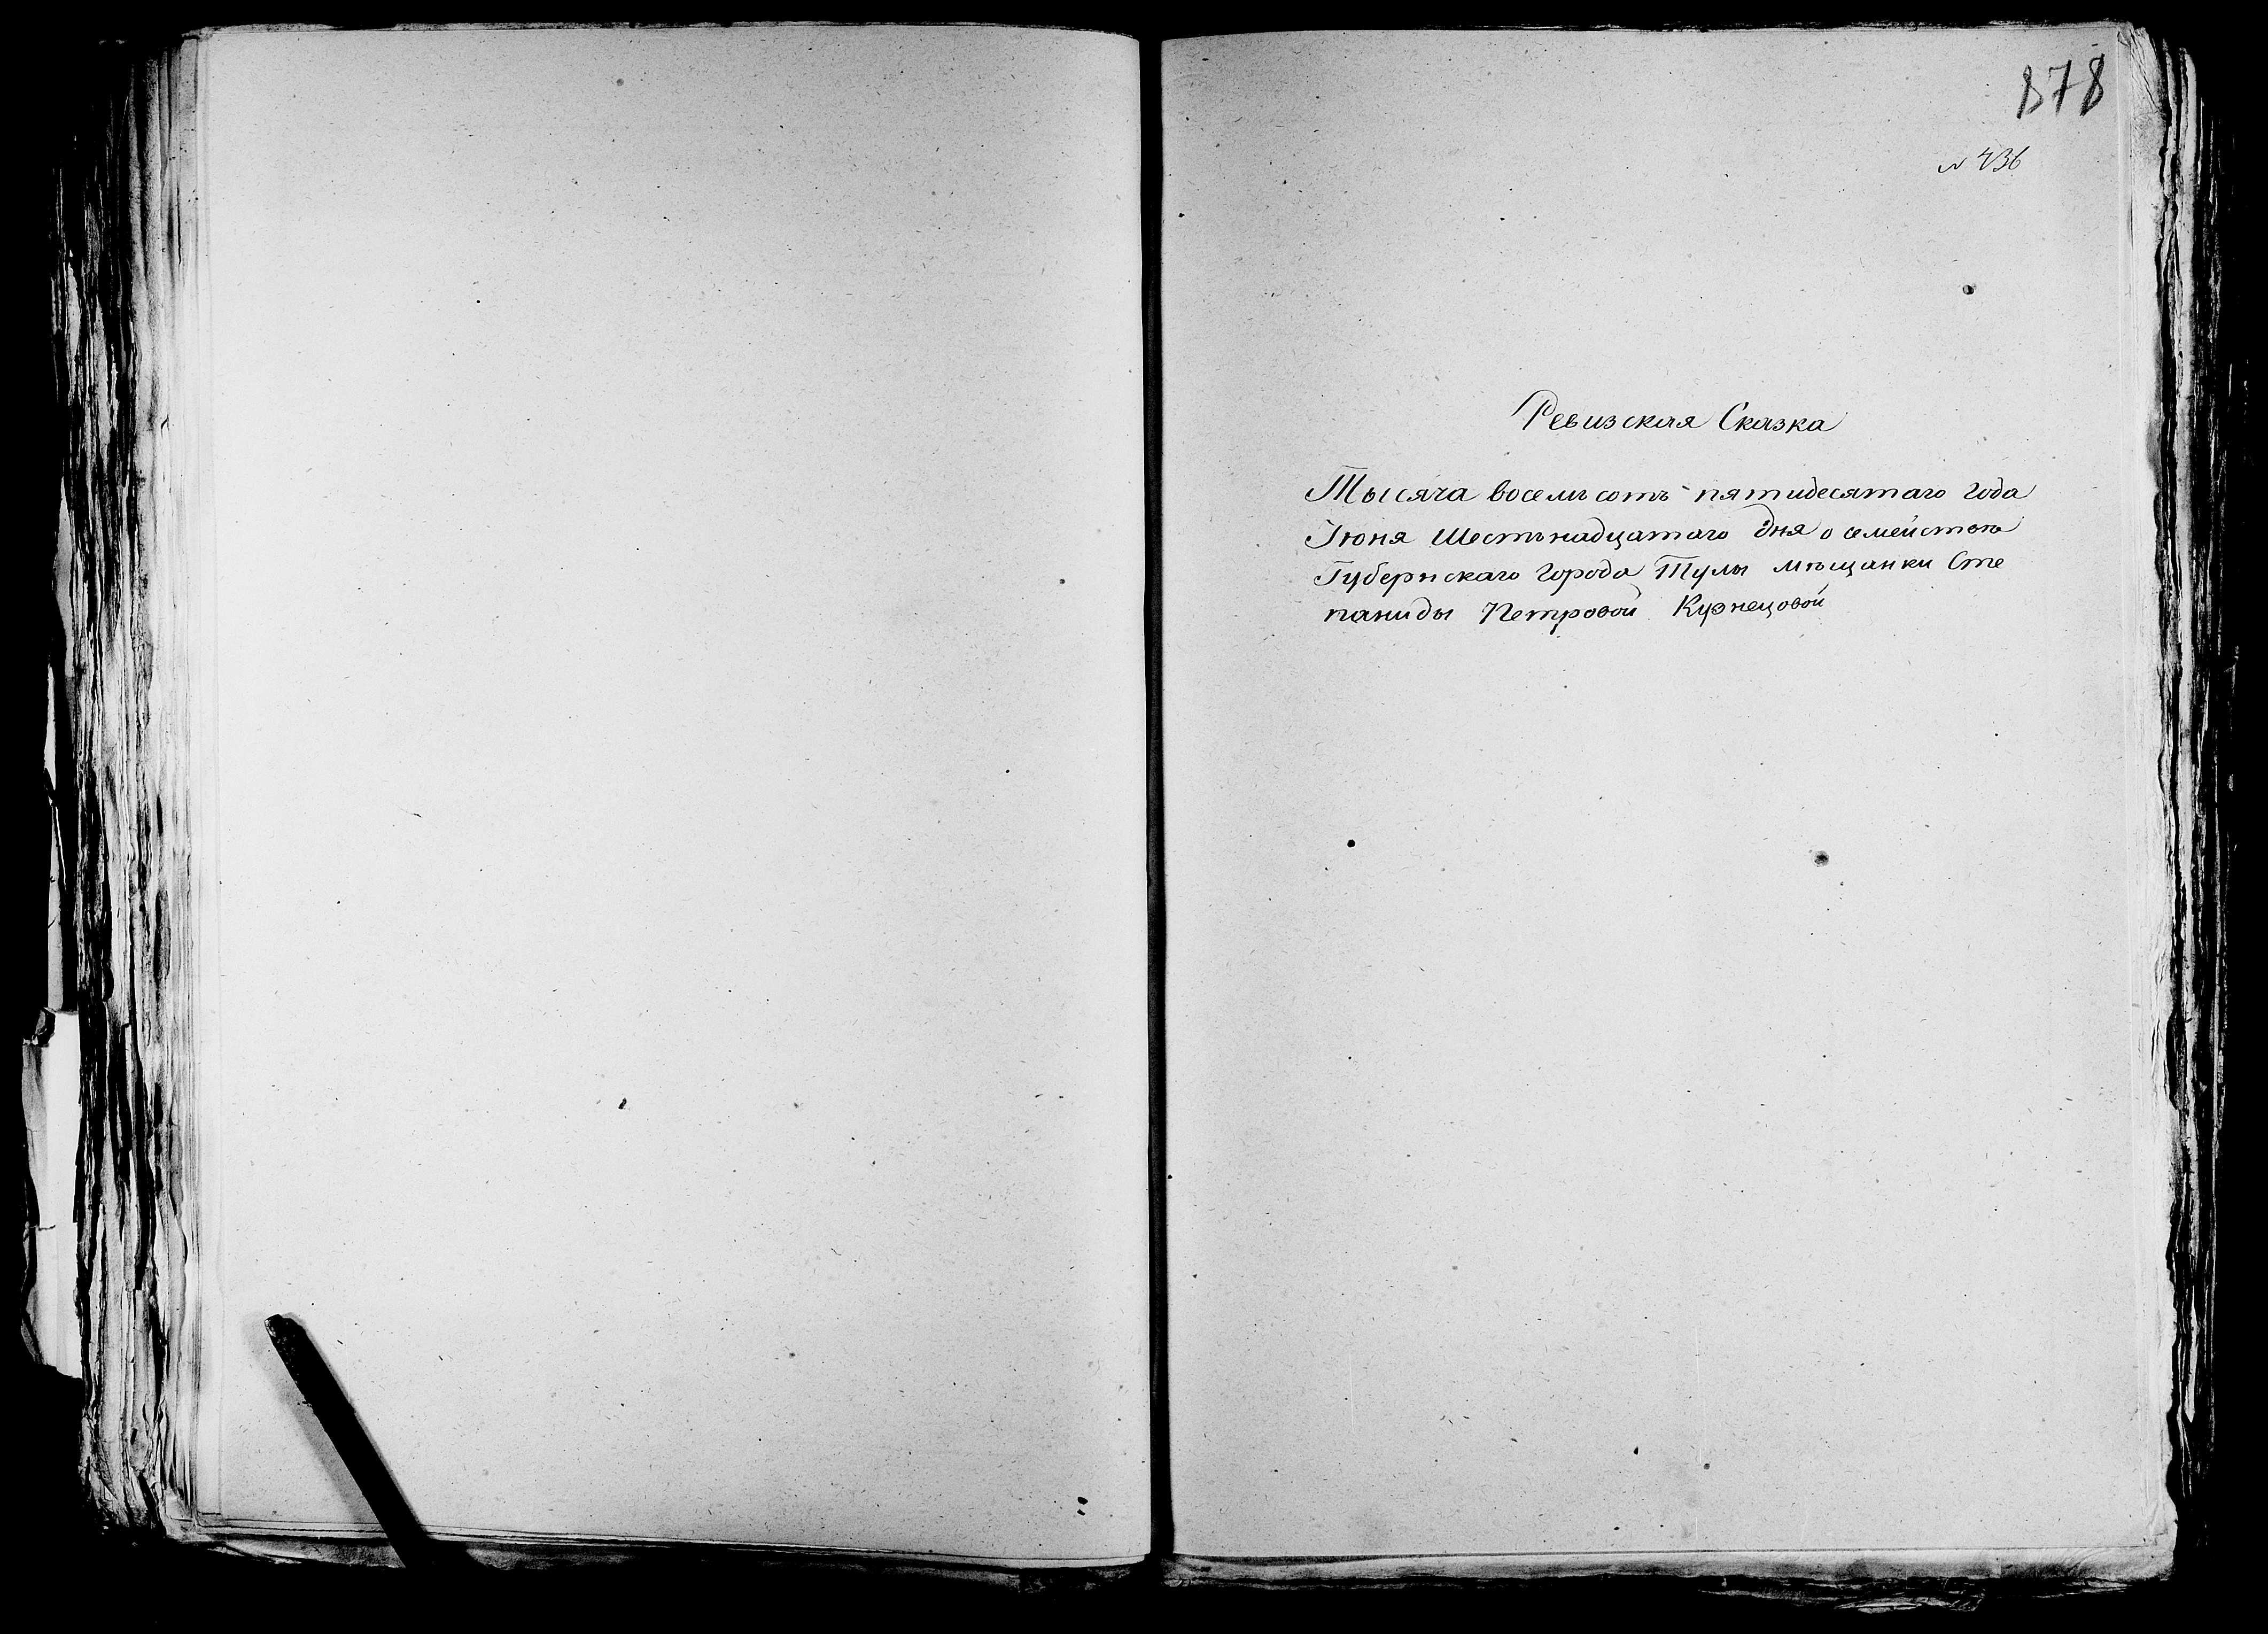 878
№ 436
Ревизская Сказка
Тысяча восемь сотъ пятидесятаго года
Іюня Шестьнадцатаго дня о семействѣ
Губернскаго города Тулы мѣщанки Сте
паниды Петровой Кузнецовой